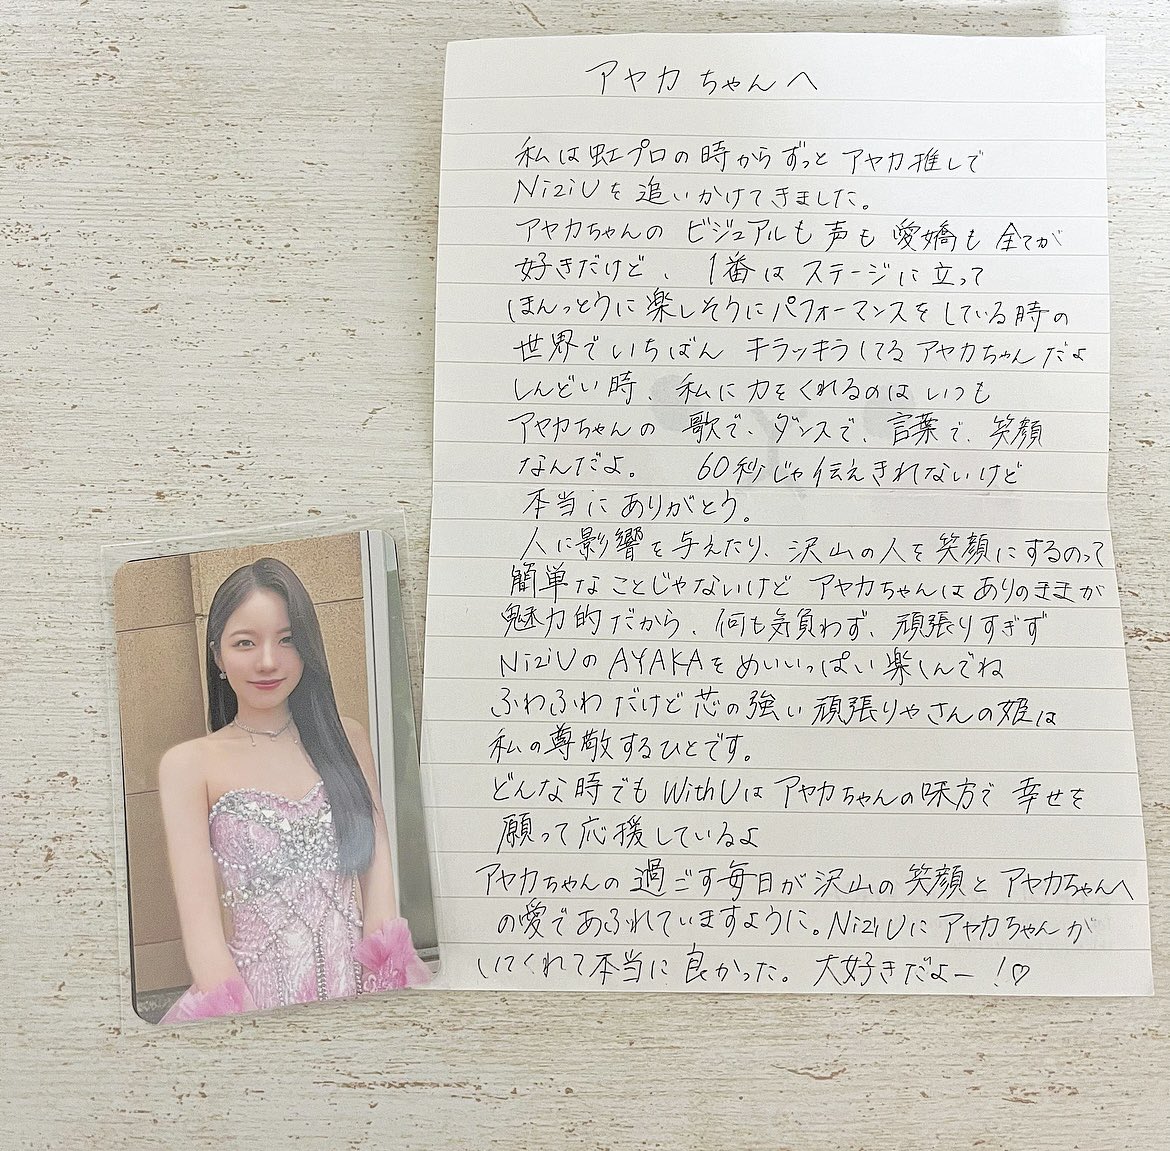 アヤカちゃんへ
私は虹プロの時からずっとアヤカ推しで
NiziUを追いかけてきました。
アヤカちゃんの ビジュアルも声も 愛嬌も 全てが
好きだけど、1番は ステージに立って
ほんっとうに楽しそうにパフォーマンスをしている時の
世界でいちばん キラッキラしてる アヤカちゃんだよ
しんどい時、私に力をくれるのは いつも
アヤカちゃんの 歌で、ダンスで、言葉で、笑顔
なんだよ。 60秒じゃ伝えきれないけど
本当にありがとう。
人に影響を与えたり、沢山の人を笑顔にするのって
簡単なことじゃないけど アヤカちゃんは ありのままが
魅力的だから、何も気負わず、頑張りすぎず
NiziUの AYAKAを めいいっぱい 楽しんでね
ふわふわだけど 芯の強い 頑張りやさんの姫は
私の尊敬するひとです。
どんな時でも WithUは アヤカちゃんの味方で 幸せを
願って応援しているよ
アヤカちゃんの 過ごす毎日が 沢山の 笑顔と アヤカちゃんへ
の愛であふれていますように。NiziUに アヤカちゃんが
いてくれて本当に 良かった。 大好きだよー！♡